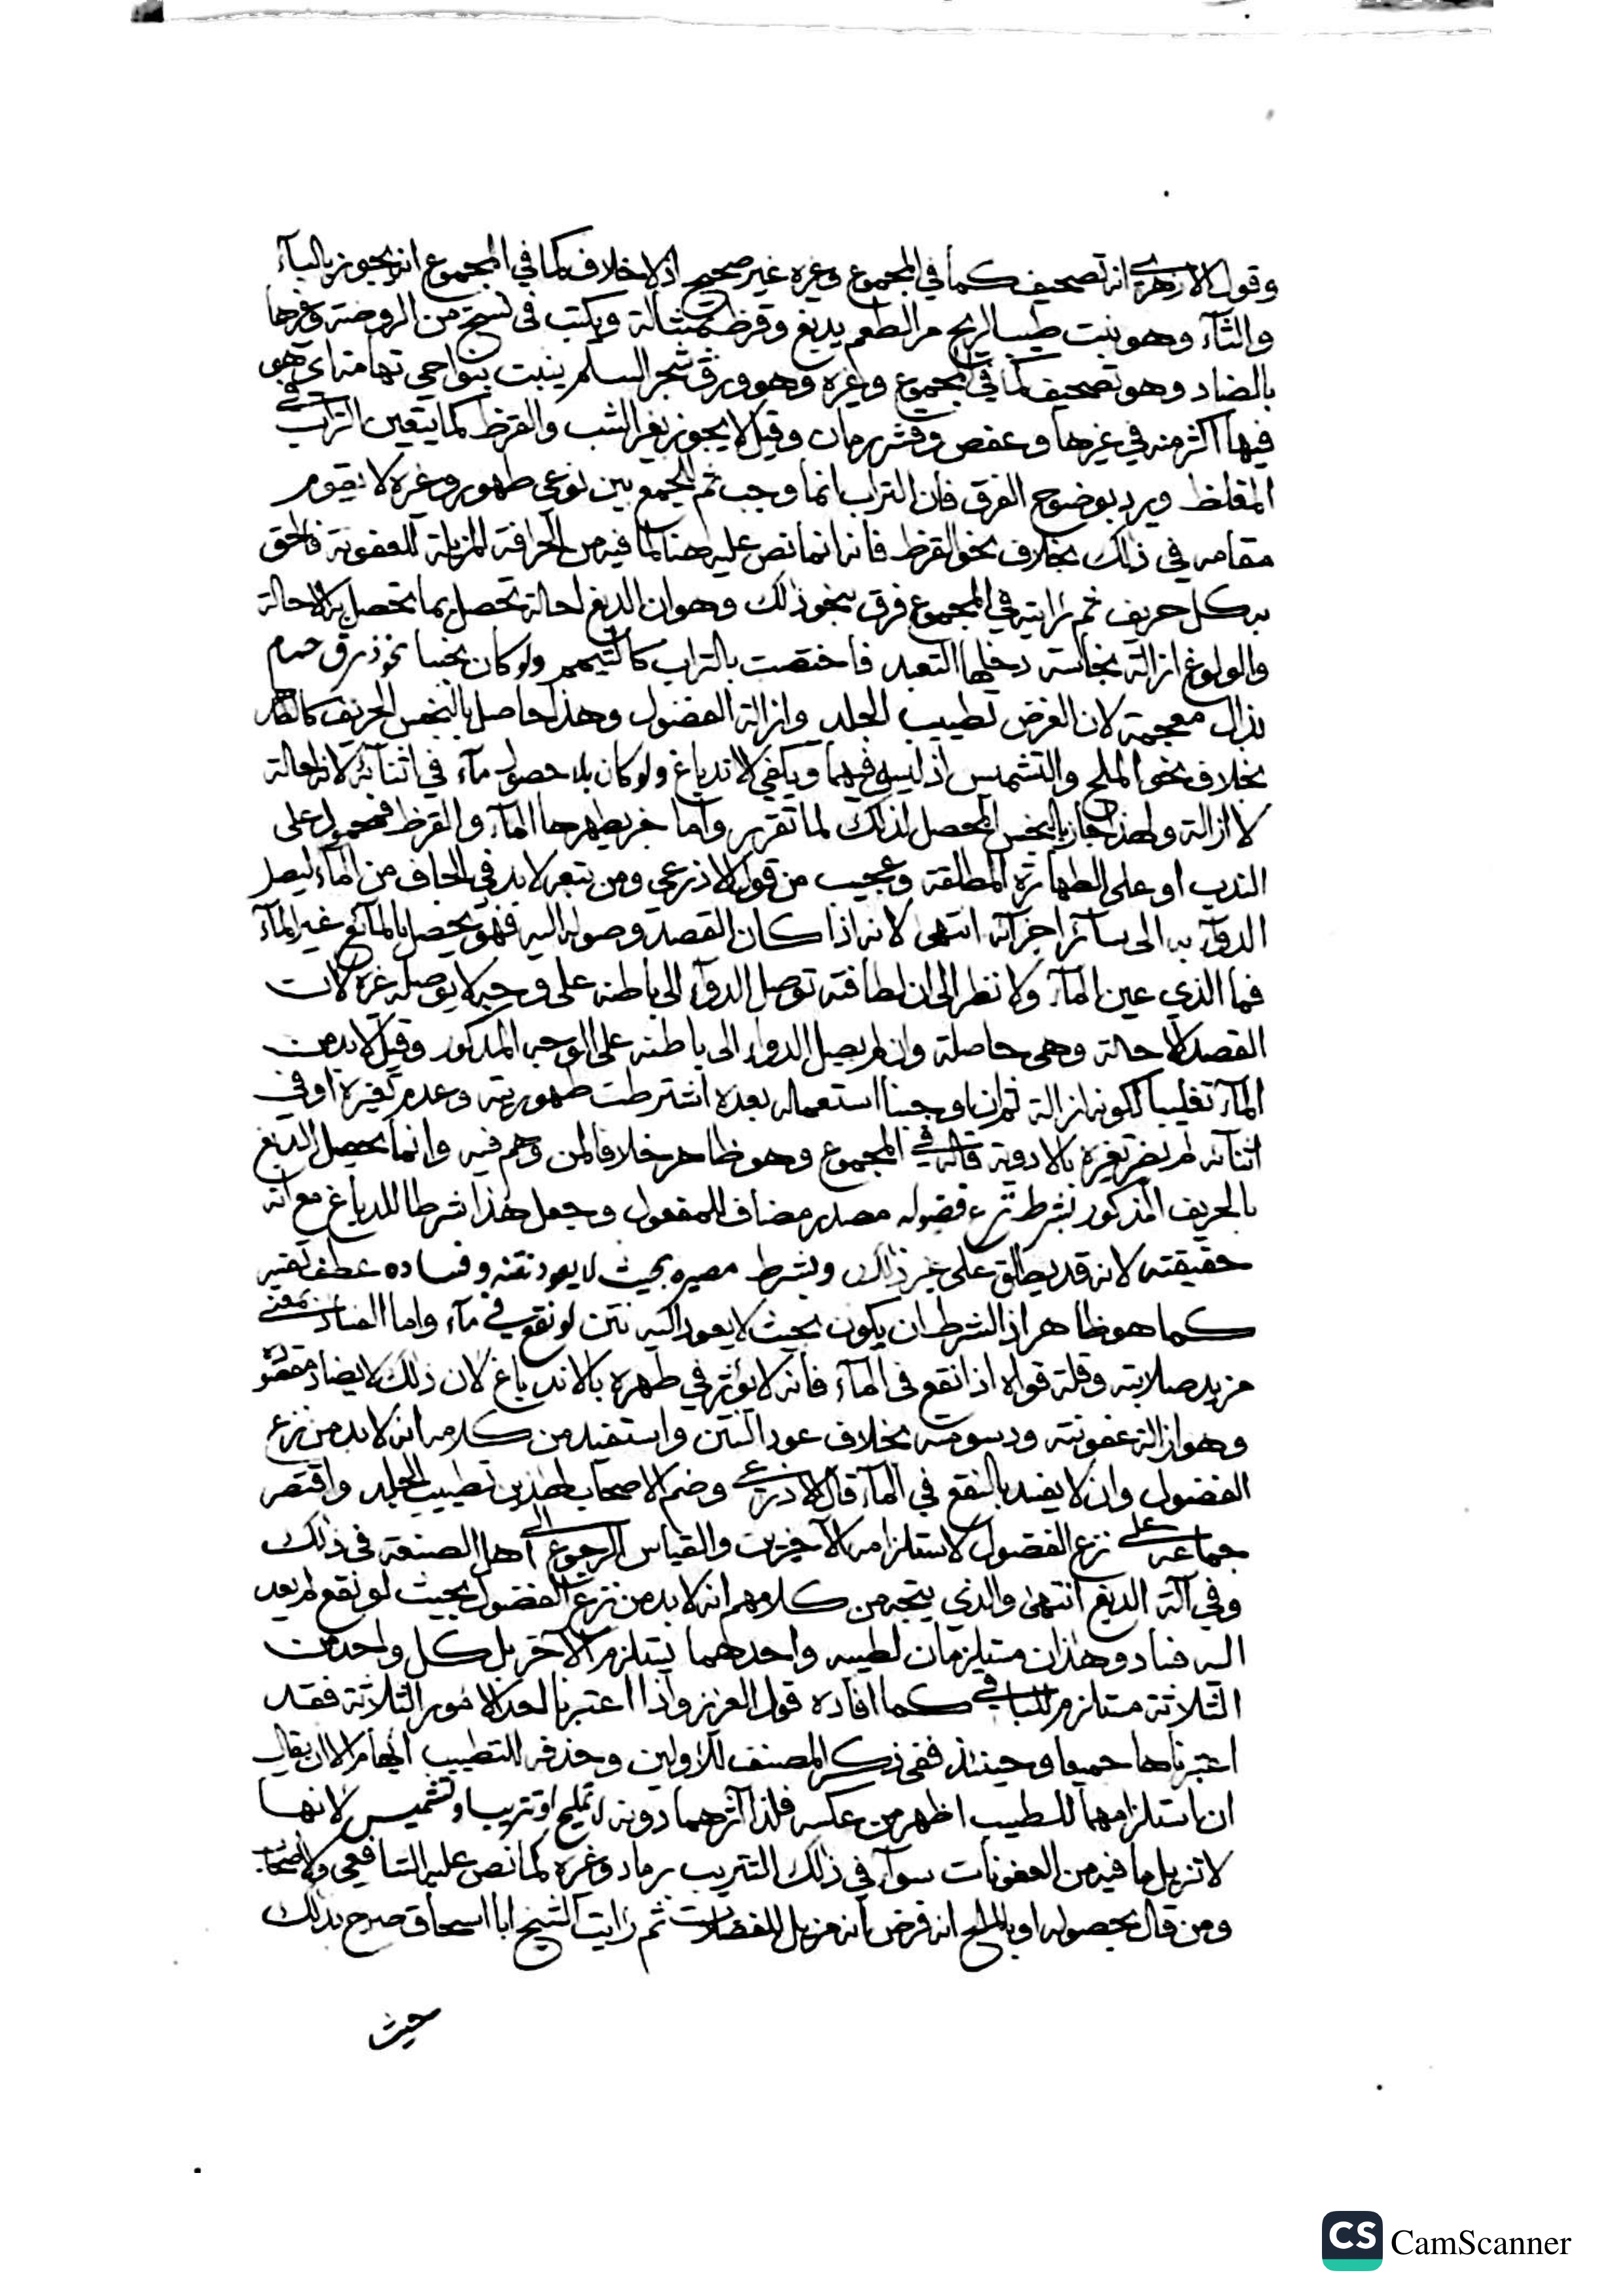 وقول الازهري انه تصحيف كما في المجموع وغيره غير صحيح اذ لا خلاف كما في المجموع انه يجوز بالبآء
والثآء وهو نبت طيب الريح مر الطعم يدبغ وقرظ مشالة ويكتب في نسخ من الروضة وغيرها
بالضاد وهو تصحيف كما في المجموع وغيره وهو ورق شجر السلم ينبت بنواحي تهامة اي هو
فيها اكثر منه في غيرها وعفص وقشر رمان وقيل لا يجوز بغير الشب والقرظ كما يتعين التراب في
المغلظ ويرد بوضوح الفرق فان التراب انما وجب ثم للجمع بين نوعي طهور وغيره لا يقوم
مقامه في ذلك بخلاف نحو القرظ فانه انما نص عليه هنا لما فيه من الحرافة المزيلة للعفونة فالحق
به كل حريف ثم رايته في المجموع فرق بنحو ذلك وهو ان الدبغ احالة تحصل بما تحصل به الاحالة
والولوغ ازالة نجاسة دخلها التعبد فاختصت بالتراب كالتيمم ولو كان نجسا نحو ذرق حمام
بذال معجمة لان الغرض تطييب الجلد وازالة الفضول وهذا حاصل بالنجس الحريف كالطاهر
بخلاف نحو الملح والتشميس اذ ليس فيهما ويكفي الاندباغ ولو كان بلا حصول مآء في اثنآئه لانه احالة
لا ازالة ولهذا جاز بالنجس المحصل لذلك لما تقرر واما خبر يطهرها المآء والقرظ فمحمول على
الندب او على الطهارة المطلقة وعجيب من قول الاذرعي ومن تبعه لا بد في الجاف من المآء ليصل
الدوآء به الى سآئر اجزآئه انتهى لانه اذا كان القصد وصوله اليه فهو يحصل بالمآئع غير المآء
فما الذي عين المآء ولا نظر الى ان لطافته توصل الدوآء الى باطنه على وجه لا يوصله غيره لان
القصد الاحالة وهي حاصلة وان لم يصل الدواء الى باطنه على الوجه المذكور وقيل لا بد من
المآء تغليبا لكونه ازالة ثم ان اوجبنا استعماله بعده اشترطت طهوريته وعدم تغيره او في
اثنآئه لم يضر تغيره بالادوية قاله في المجموع وهو ظاهر خلافا لمن وهم فيه وانما يحصل الدبغ
بالحريف المذكور بشرط نزع فضوله مصدر مضاف للمفعول وجعل هذا شرطا للدباغ مع انه
حقيقته لانه قد يطلق على غير ذلك وبشرط مصيره بحيث لا يعود نتنه وفساده عطف تفسير
كما هو ظاهر اذ الشرط ان يكون بحيث لا يعود اليه نتن لو نقع في مآء واما الفساد بمعنى
مزيد صلابته وقلة قواه اذا نقع في المآء فانه لا يؤثر في طهره بالاندباغ لان ذلك لا يضاد مقصوده
وهو ازالة عفونته ودسومته بخلاف عود النتن واستفيد من كلامه انه لا بد من نزع
الفضول وان لا يفسد بالنقع في المآء قال الاذرعي وضم الاصحاب لهذين تطييب الجلد واقتصر
جماعة على نزع الفضول لاستلزامه الآخرين والقياس الرجوع الى اهل الصنعة في ذلك
وفي آلة الدبغ انتهى والذي يتجه من كلامهم انه لا بد من نزع الفضول بحيث لو نقع لم يعد
اليه فساد وهذان مستلزمان لطيبه واحدهما يستلزم الآخر بل كل واحد من
الثلاثة مستلزم للباقي كما افاده قول العزيز واذا اعتبرنا احد الامور الثلاثة فقد
اعتبرناها جميعا وحينئذ ففي ذكر المصنف للاولين وحذفه للتطييب ايهام الا ان يقال
ان استلزامهما للطيب اظهر من عكسه فلذا آثرهما دونه لا تمليح او تتريب او تشميس لانها
لا تزيل ما فيه من العفونات سوآء في ذلك التتريب برماد وغيره كما نص عليه الشافعي والاصحاب
ومن قال بحصوله او بالملح انه فرض انه مزيل للفضلات ثم رايت الشيخ ابا اسحاق صرح بذلك
حيث
CS CamScanner